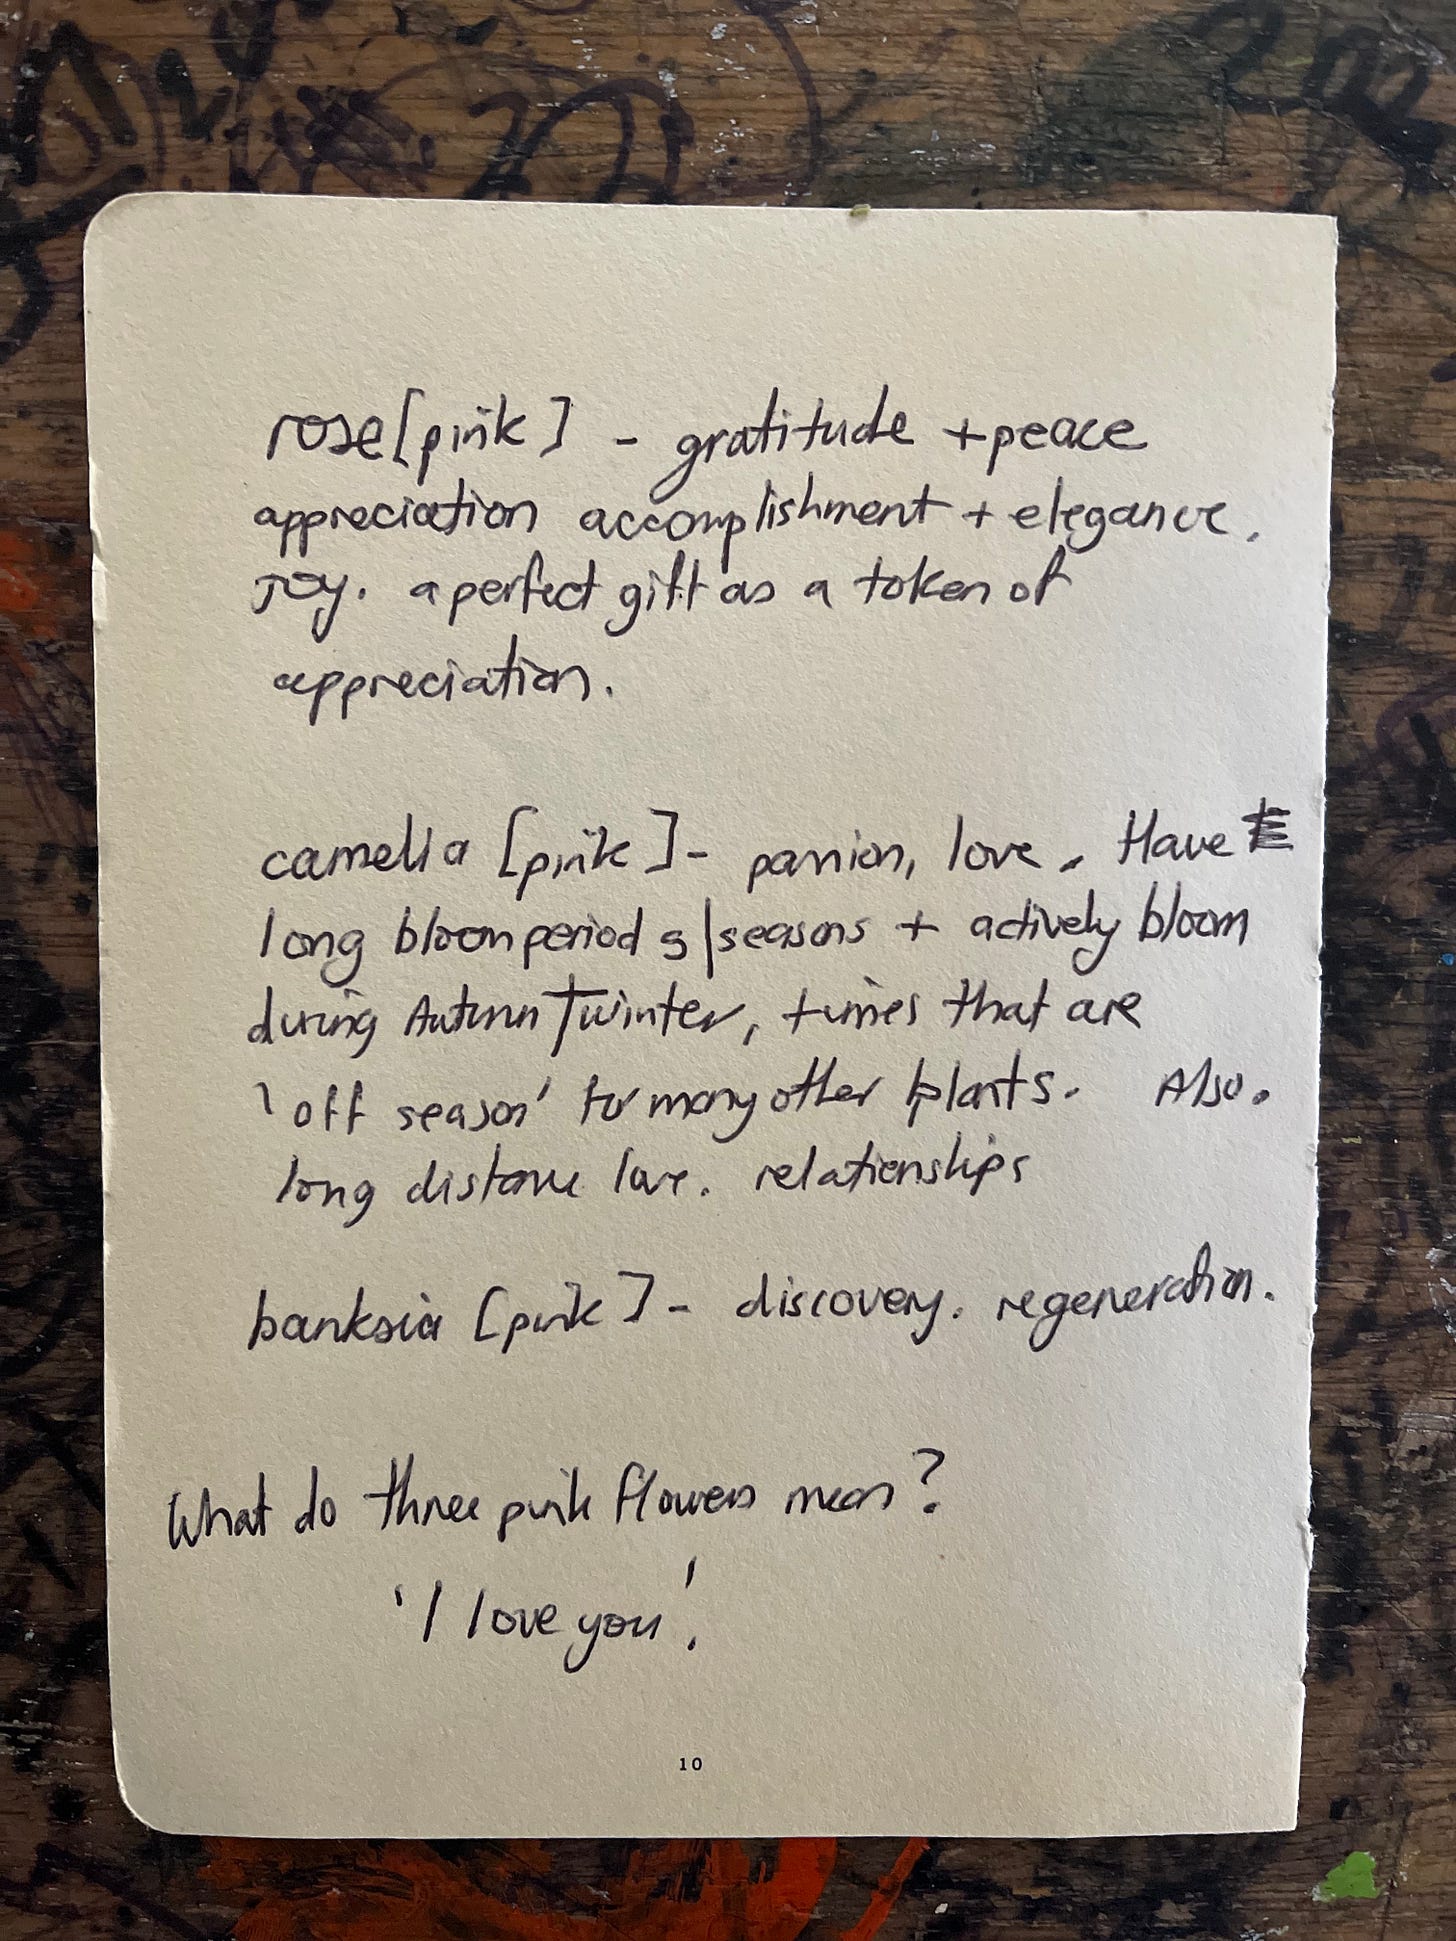 rose [pink] - gratitude + peace
appreciation accomplishment + elegance.
joy. a perfect gift as a token of
appreciation.
camellia [pink] - passion, love. Have
long bloom periods | seasons + actively bloom
during Autumn + winter, times that are
'off season' for many other plants. Also.
long distance love. relationships
banksia [pink] - discovery. regeneration.
What do three pink flowers mean?
'I love you'.
10